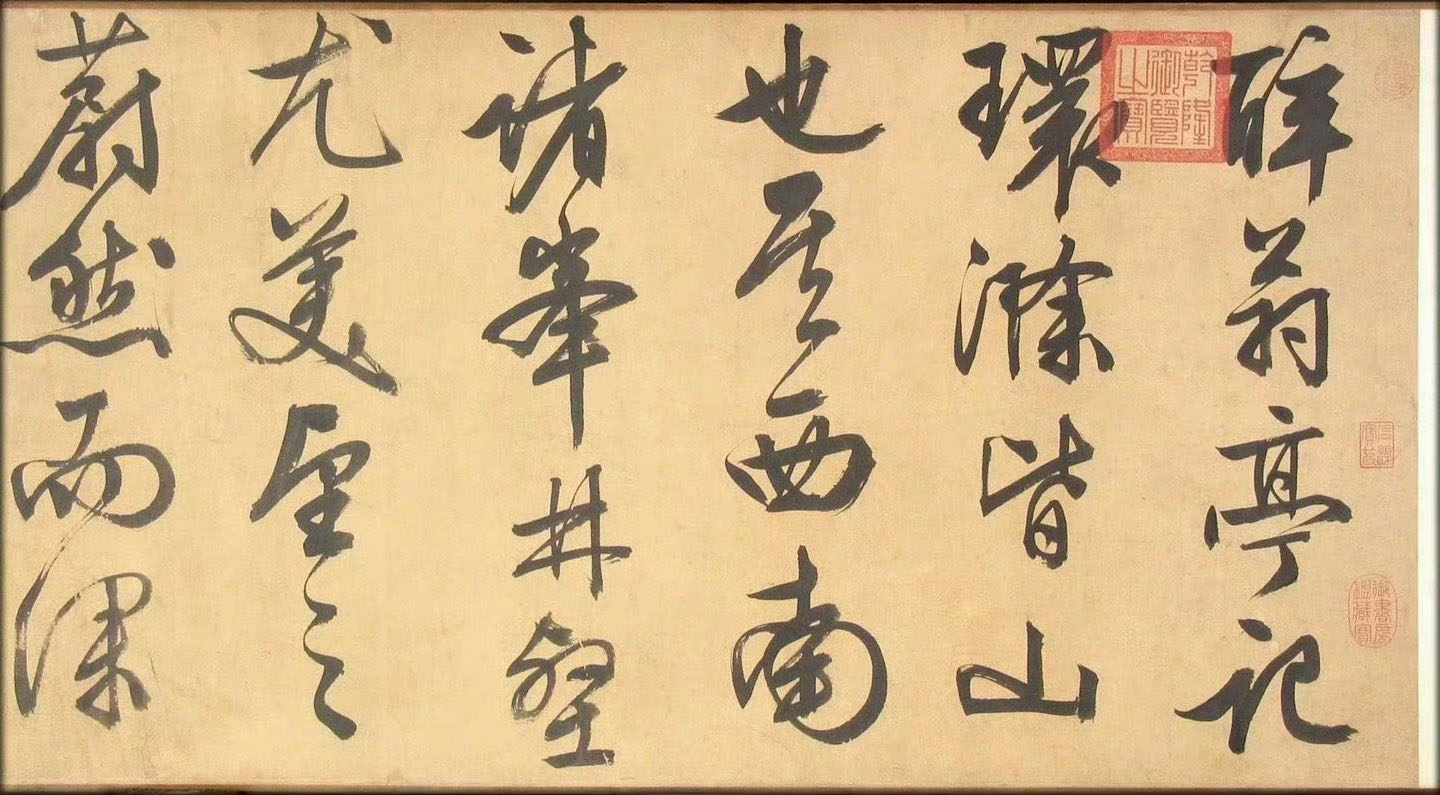 醉翁亭記
環滁皆山
也其西南
諸峯林壑
尤美望之
蔚然而深
乾隆御覽之寶
御書房鑑藏寶